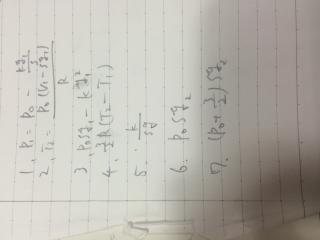 1、P₁ = P₀ - ky₁/S
2、T₂ = P₀(V₁ - Sy₁)/R
3、P₀Sy₁ - ky₁²
4、3/2 R(T₂ - T₁)
5、k/Sy
6、P₀Sy₂
7、(P₀ + 3/2)Sy₂